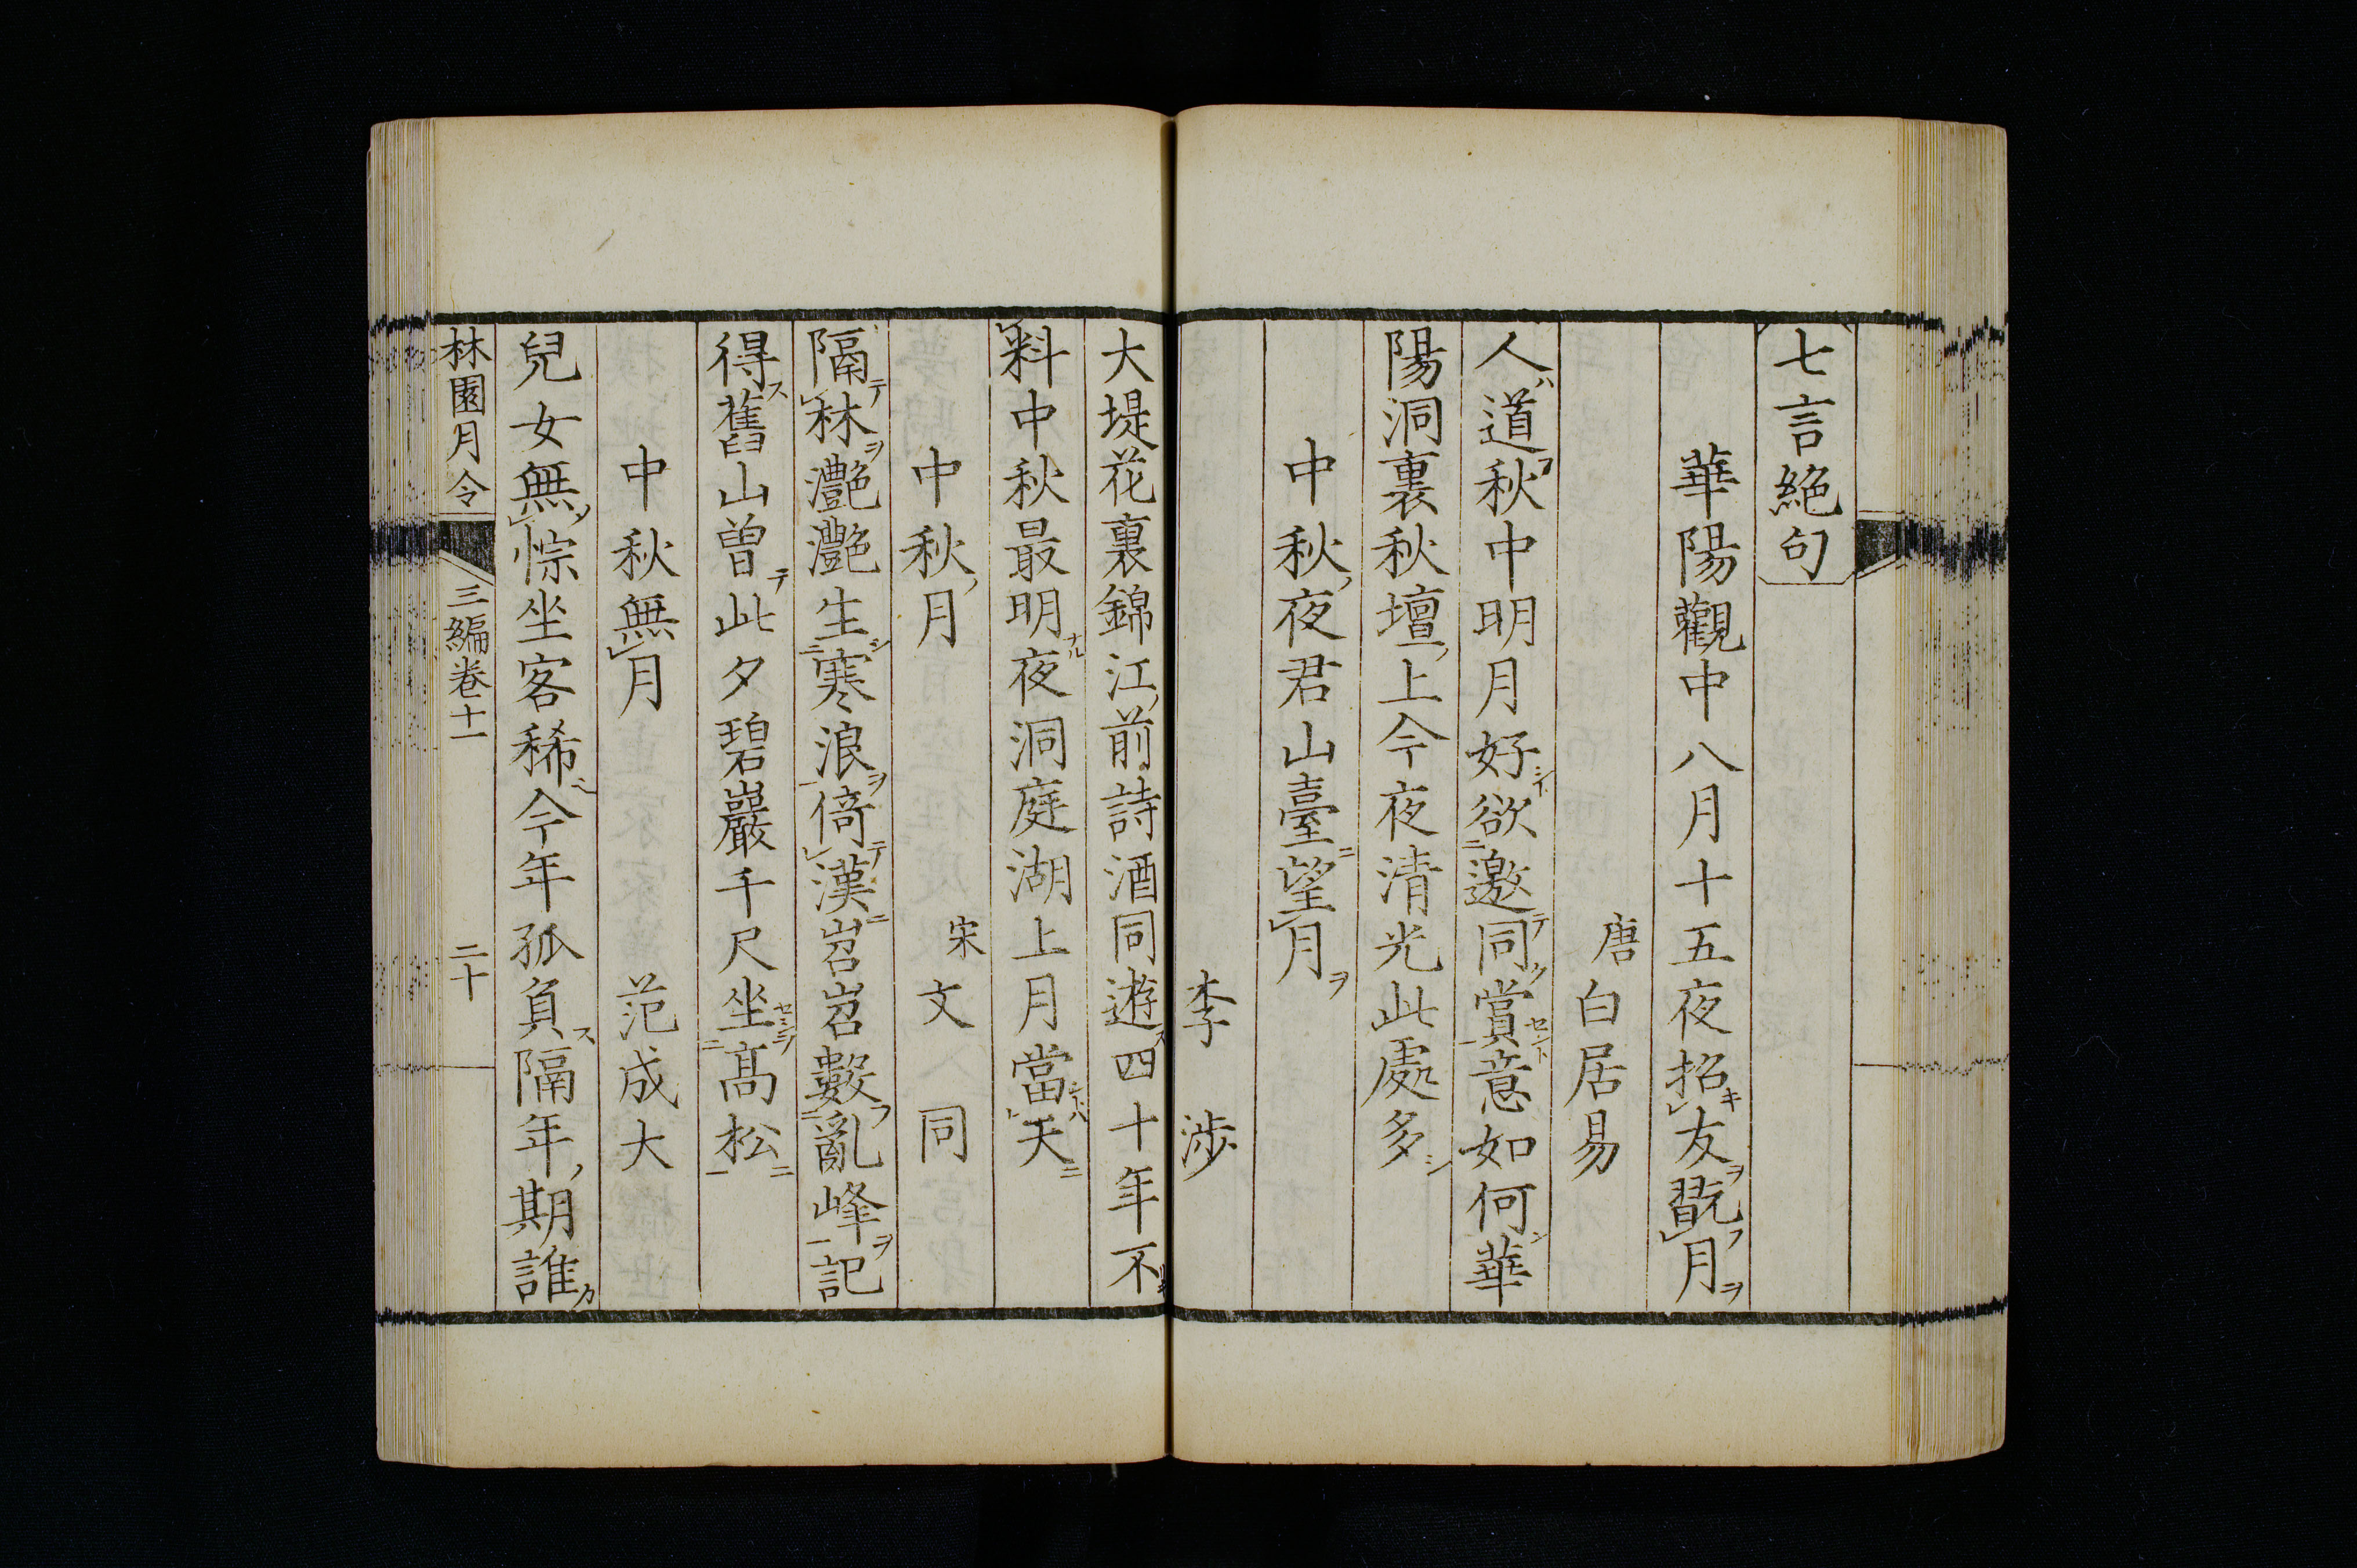 七言絶句
華陽觀中八月十五夜招友翫月
唐白居易
人道秋中明月好欲邀同賞意如何華
陽洞裏秋壇上今夜清光此處多
中秋夜君山臺望月
李渉
大堤花裏錦江前詩酒同遊四十年不
料中秋最明夜洞庭湖上月當天
中秋月
宋文同
隔林灔灔生寒浪倚漢岧岧數亂峰記
得舊山曽此夕碧巖千尺坐髙松
中秋無月
范成大
兒女無悰坐客稀今年孤負隔年期誰
林園月令 三編卷十一 二十